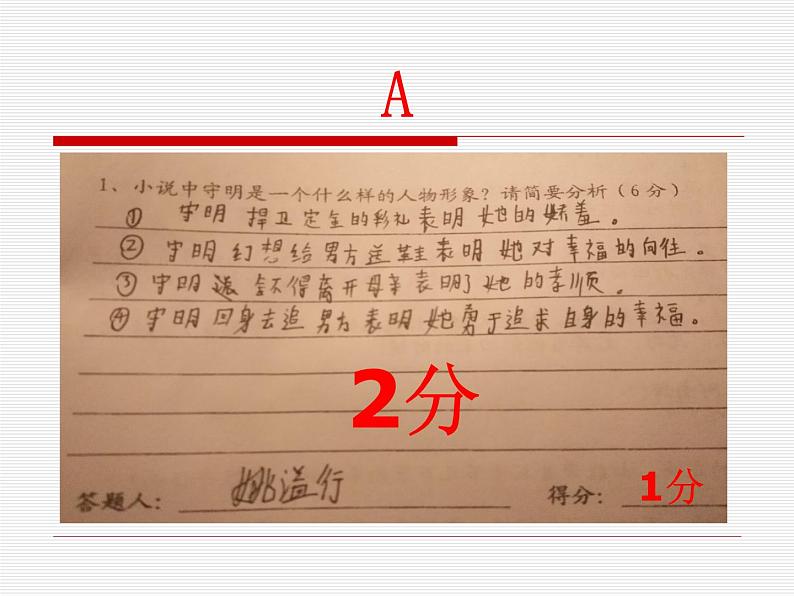 A
1、小说中守明是一个什么样的人物形象？请简要分析（6分）
① 守明 捍卫定金的彩礼表明她的娇羞。
② 守明幻想给男方送鞋表明她对幸福的向往。
③ 守明 舍不得离开母亲表明了她的孝顺。
④ 守明回身去追男方表明她勇于追求自身的幸福。
2分
答题人：姚溢行 得分：1分